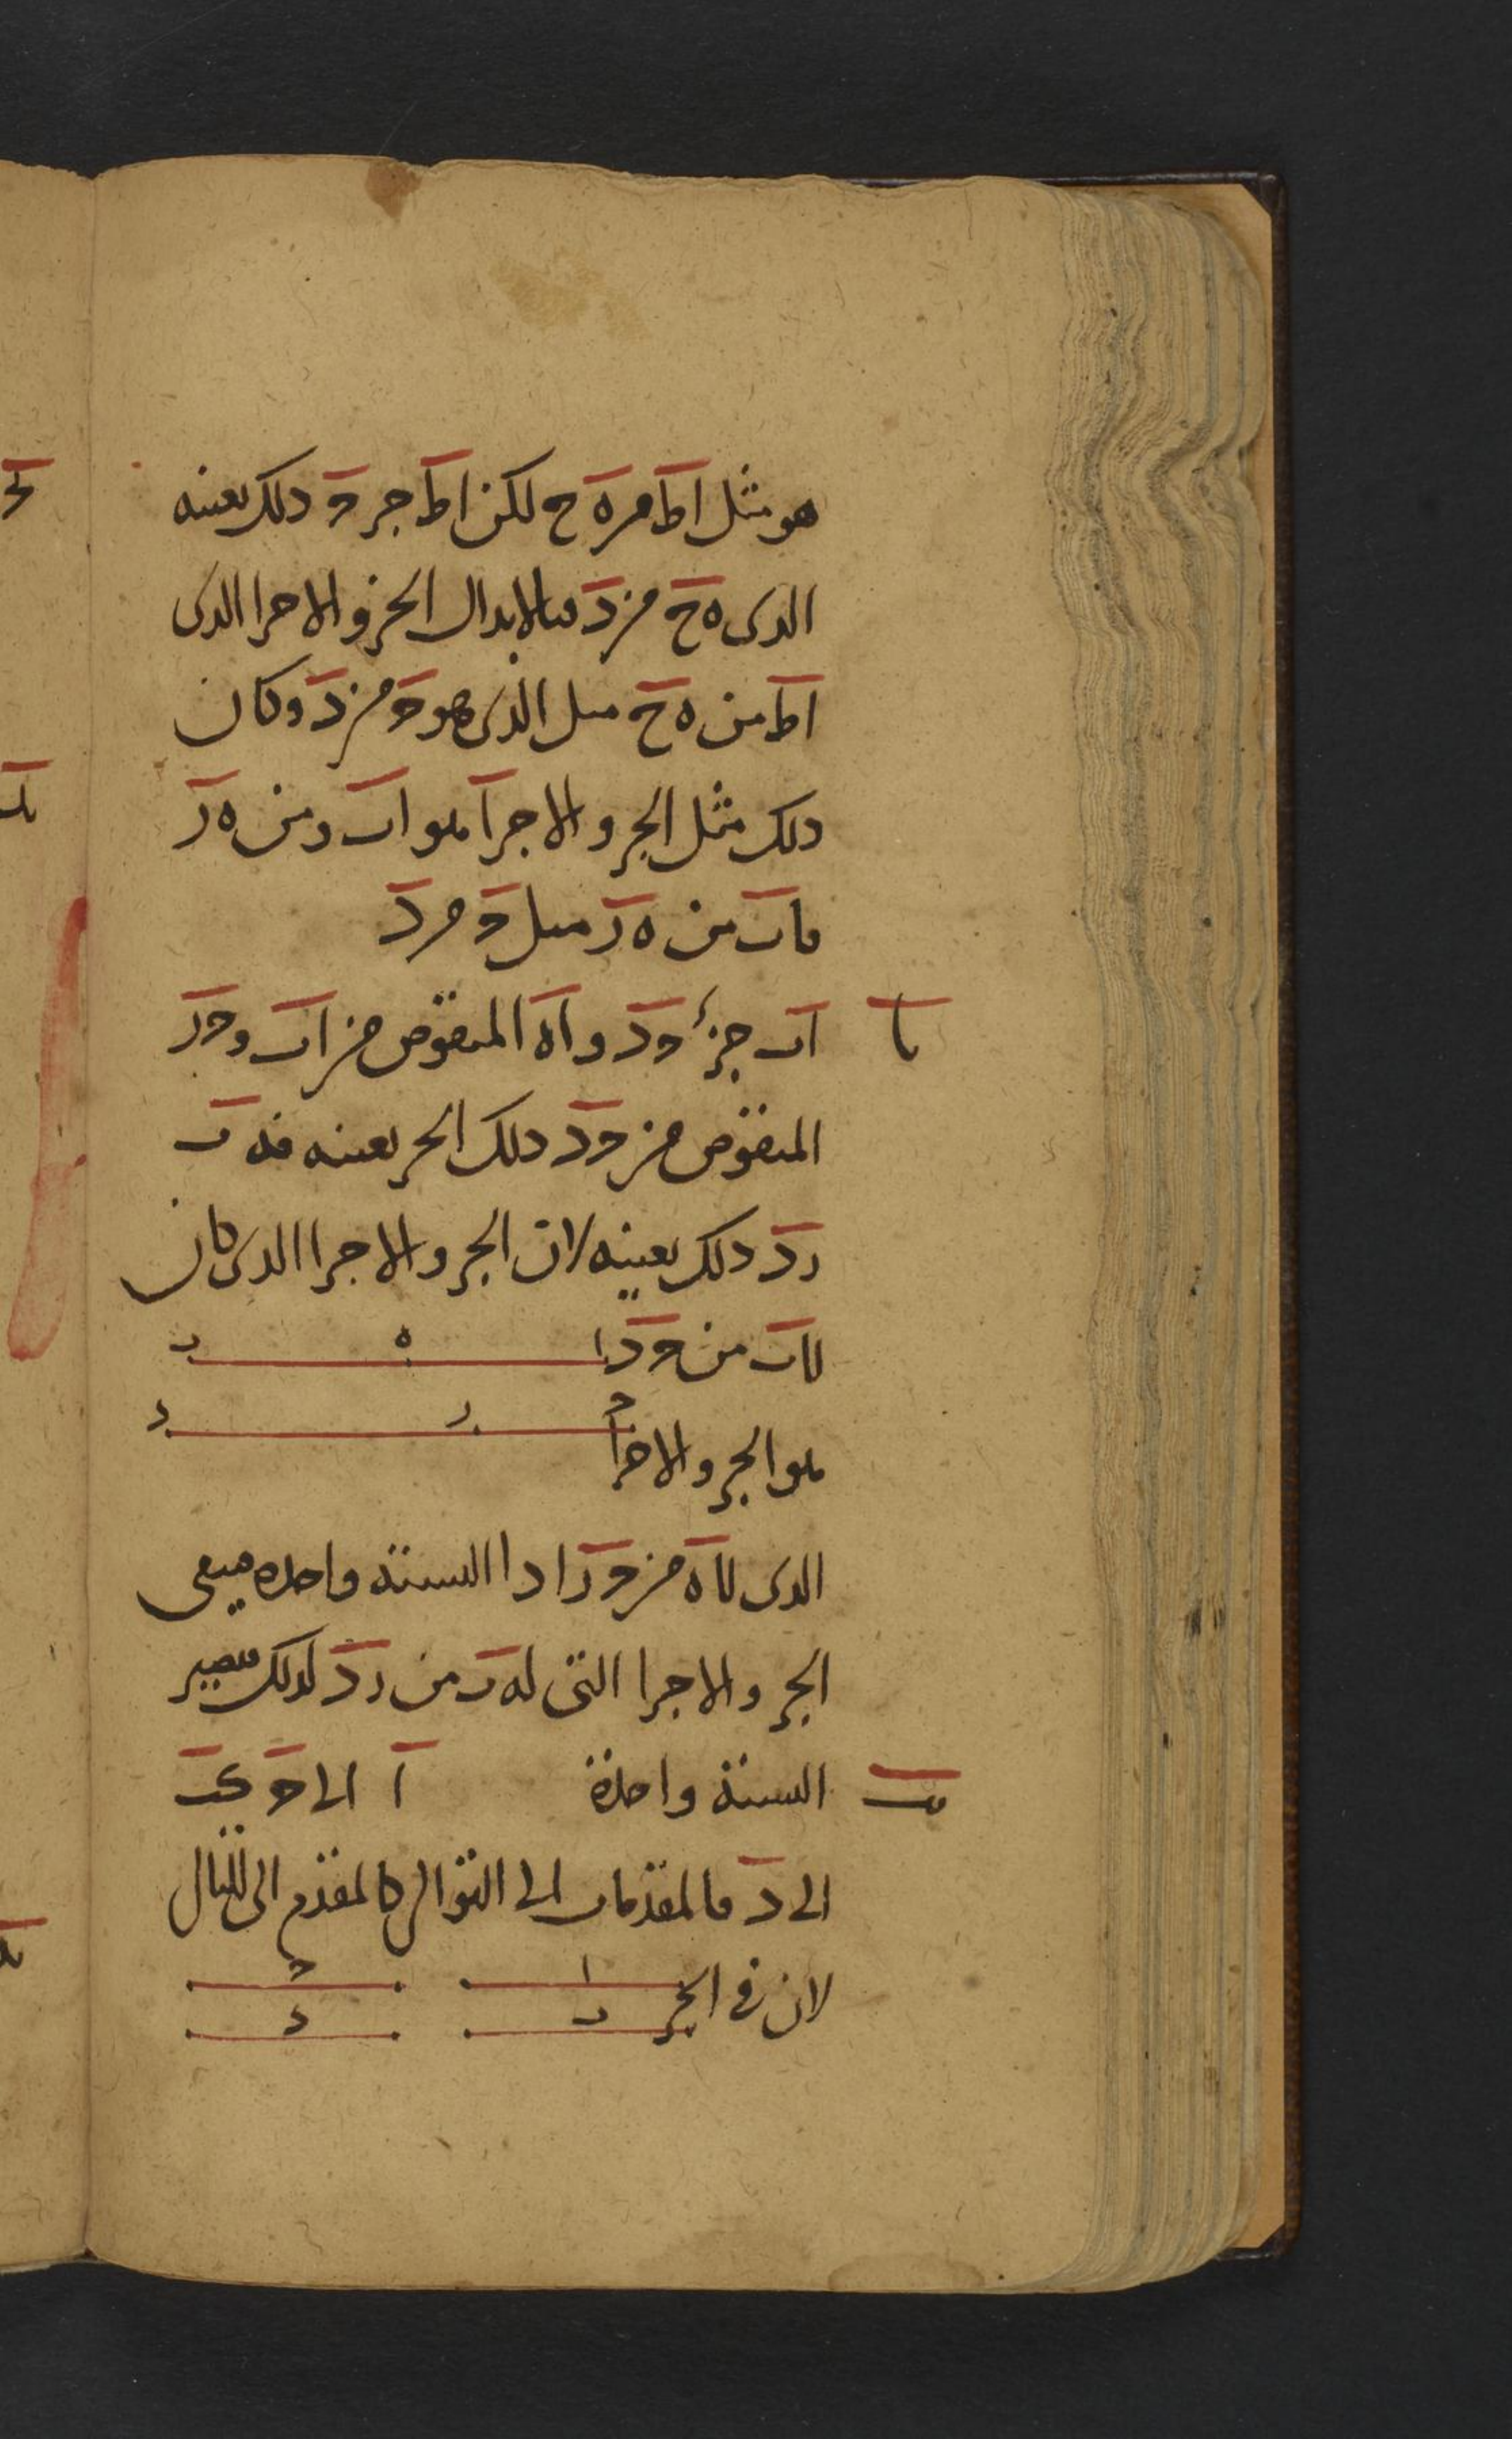 هو مثل اط من ه ح لكن اط جز ح ذلك بعينه
الذى ه ح من د فبالابدال الجز والاجزا الذى
اط من ه ح مثل الذى هو ح من د وكان
ذلك مثل الجز والاجزا هو اب ومن ه ز
فاب من ه ز مثل ح من د
يا
اب جزء حد و اه المنقوص من اب وحز
المنقوص من حد ذلك الجز بعينه فه ب
زد ذلك بعينه لان الجز والاجزا الذى كان
لاب من حد
ا ه ب
ح ز د
هو الجز والاجزا
الذى لاه من حز اذا السنة واحده فيبقى
الجز والاجزا التى له ب من زد لذلك فتصير
يب
السنة واحدة ا الى ح كب
الى د فالمقدمات الى التوالى كالمقدم الى التال
لان فى الجز
ا ح
ب د